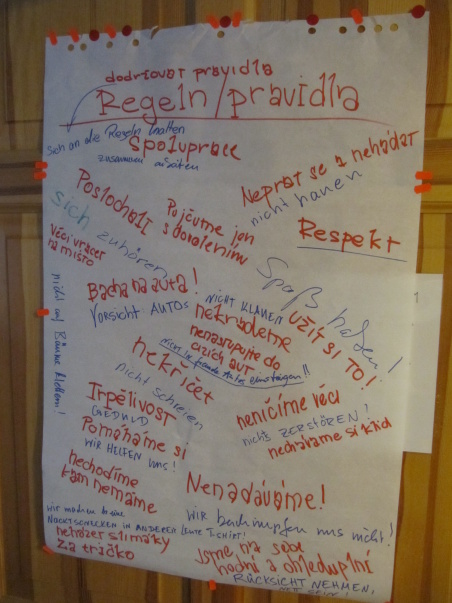 dodržovat pravidla
Regeln/pravidla
sich an die Regeln halten
spolupráce
zusammen arbeiten
Neprat se a nehádat
nicht hauen
Poslochat
sich zuhören
Pojčujme jen
s dovolením
Respekt
Věci vracet
na místo
Spaß haben!
UŽÍT SI TO!
Bacha na auta!
VORSICHT AUTOS
NICHT KLAUEN
nekrademe
nenastupujte do
cizích aut
nicht in fremde Autos einsteigen!!
nicht auf Bäume klettern!
nekřičet
nicht schreien
Trpělivost
GEDULD
neničíme věci
nichts ZERSTÖREN!
necháváme si klid
Pomáháme si
WIR HELFEN UNS!
nechodíme
kam nemáme
Nenadáváme!
WIR beschimpfen uns nicht!
WIR machen keine
NACKTSCHNECKEN IN ANDERER LEUTE T-SHIRT!
neházet slimáky
za tričko
Jsme na sebe
hodní a ohleduplní
RÜCKSICHT NEHMEN,